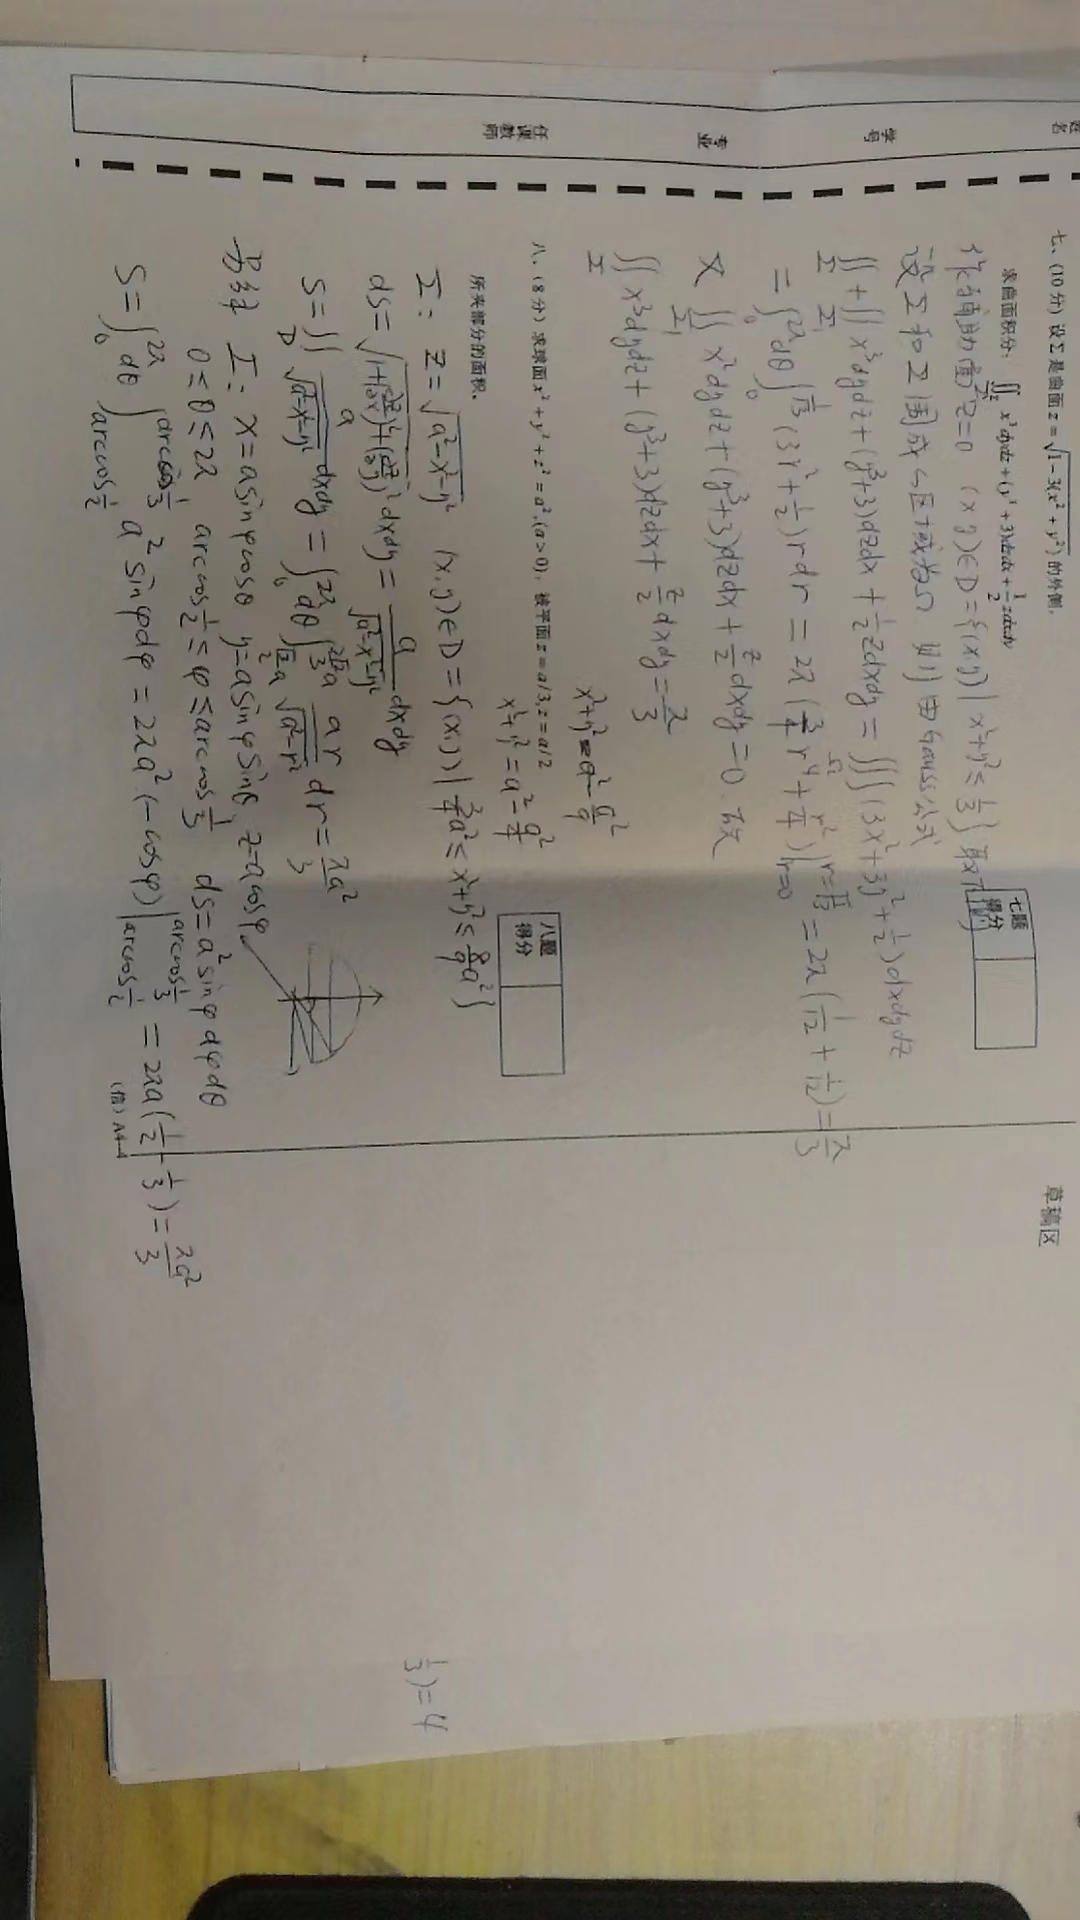 姓名
学号
专业
任课教师
草稿区
七、(10分) 设Σ是曲面 z = √(1-3(x²+y²)) 的外侧,
求曲面积分: ∬_Σ x³dydz+(y³+3)dzdx+1/2 zdxdy
七题得分
作辅助面 z=0 (x y)∈D={(x,y)| x²+y² ≤ 1/3} 取
设Σ和Σ围成的区域为Ω 则由Gauss公式
∬_Σ + ∬_Σ₁ x³dydz+(y³+3)dzdx + 1/2 zdxdy = ∭_Ω (3x²+3y²+1/2)dxdydz
= ∫_0^2π dθ ∫_0^(1/√3) (3r²+1/2) r dr = 2π (3/4 r⁴ + r²/4)|_(r=0)^(r=√1/3) = 2π(1/12 + 1/12) = π/3
又 ∬_Σ₁ x²dydz+(y³+3)dzdx + z/2 dxdy = 0. 故
∬_Σ x³dydz+(y³+3)dzdx + z/2 dxdy = π/3
x²+y² = a² - a²/9
八、(8分) 求球面 x²+y²+z²=a²,(a>0), 被平面 z=a/3, z=a/2
x²+y² = a² - a²/4
八题得分
所夹部分的面积.
Σ: z=√(a²-x²-y²) (x,y)∈D={(x,y)| 3/4 a² ≤ x²+y² ≤ 8/9 a²}
1/3)=4
ds=√(1+(∂z/∂x)²+(∂z/∂y)²) dxdy = a/√(a²-x²-y²) dxdy
S=∬_D a/√(a²-x²-y²) dxdy = ∫_0^2π dθ ∫_(√3/2 a)^(2√2/3 a) ar/√(a²-r²) dr = πa²/3
另解 Σ: x=asinφcosθ y=asinφsinθ z=acosφ
0≤θ≤2π arccos1/2≤φ≤arccos1/3 ds=a²sinφdφdθ
S=∫_0^2π dθ ∫_(arccos1/2)^(arccos1/3) a²sinφdφ = 2πa²(-cosφ)|_(arccos1/2)^(arccos1/3) = 2πa(1/2 - 1/3) = πa²/3
(信) A4-4